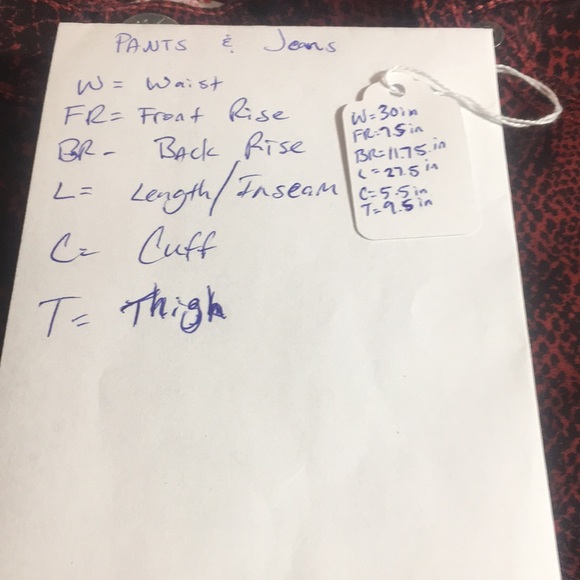 PANTS & Jeans
W = Waist
FR = Front Rise
BR - Back Rise
L = Length/Inseam
C = Cuff
T = Thigh
W=30in
FR=7.5in
BR=11.75in
L=27.5in
C=5.5in
T=9.5in